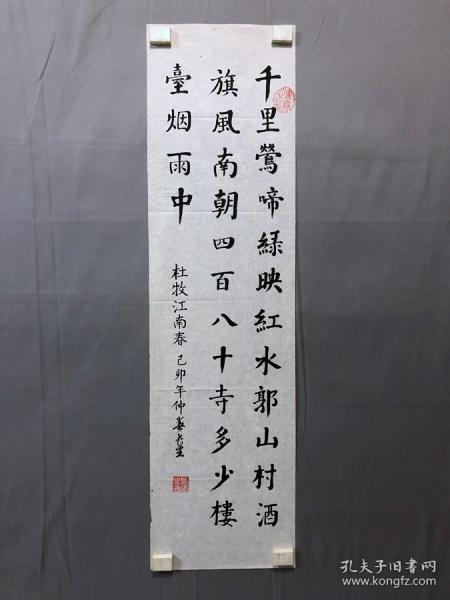 千里鶯啼緑映紅水郭山村酒
旗風南朝四百八十寺多少樓
臺烟雨中
杜牧江南春 己卯年仲春
孔夫子旧书网
www.kongfz.com